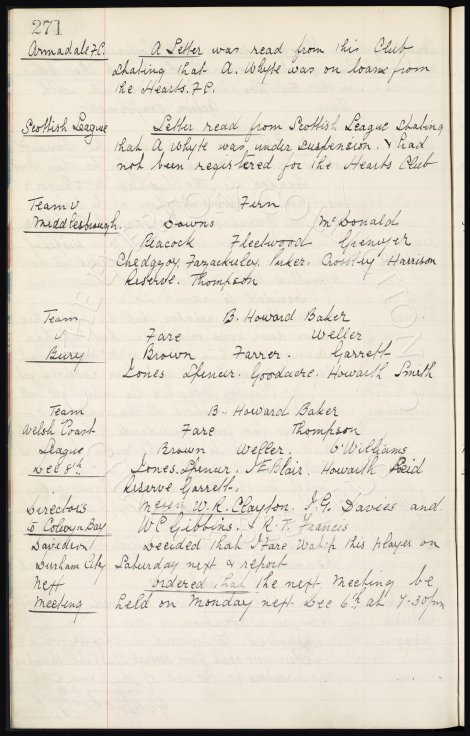 271
Armadale F.C. A Letter was read from this Club
stating that A. Whyte was on loan from
the Hearts. F.C.
Scottish League Letter read from Scottish League stating
that A Whyte was, under suspension. & had
not been registered for the Hearts Club
Team v Fern
Middlesbrough. Downs McDonald
Peacock Fleetwood Grenyer
Chedgzoy, Fazackerley, Parker, Crossley Harrison
Reserve. Thompson
Team B. Howard Baker
v Fare Weller
Bury Brown Farrer. Garrett
Jones Spencer. Goodacre. Howarth Smith
Team B. Howard Baker
Welsh Coast Fare Thompson
League Brown Weller. Williams
Dec 8th Jones. Spencer. J E Blair. Howarth Reid
Reserve Garrett.
Directors Messrs W. R. Clayton. J. G. Davies and
to Colwyn Bay W C Gibbins. & R. T. Francis
Davidson / decided that J Fare Watch this player on
Durham City Saturday next & report
Next Ordered that the next Meeting be
Meeting held on Monday next Dec 6th at 7-30 pm